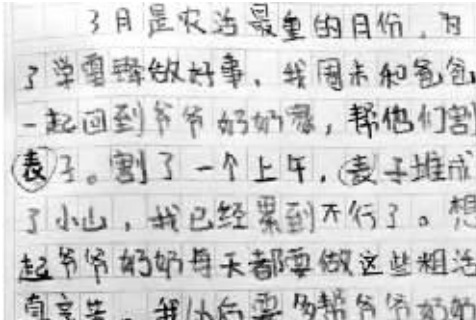 3月是农活最重的月份，为
了学雷锋做好事，我周末和爸爸
一起回到爷爷奶奶家，帮他们割
麦子。割了一个上午，麦子堆成
了小山，我已经累到不行了。想
起爷爷奶奶每天都要做这些粗活
真辛苦，我以后要多帮爷爷奶奶